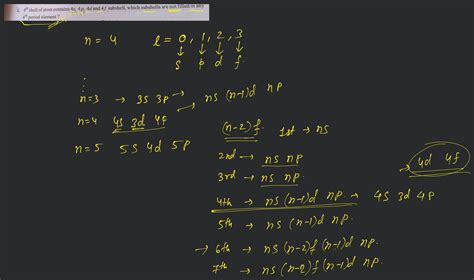 4th shell of atom contains 4s, 4p, 4d and 4f subshell, which subshells are not filled in any
4th period element ?
n = 4 l = 0, 1, 2, 3
s p d f
n=3 → 3s 3p → ns (n-1)d np
n=4 4s 3d 4f
n=5 5s 4d 5p
(n-2)f 1st → ns
2nd → ns np
3rd → ns np
4th → ns (n-1)d np → 4s 3d 4p
4d 4f
5th → ns (n-1)d np.
→ 6th → ns (n-2)f (n-1)d np
7th → ns (n-2)f (n-1)d np